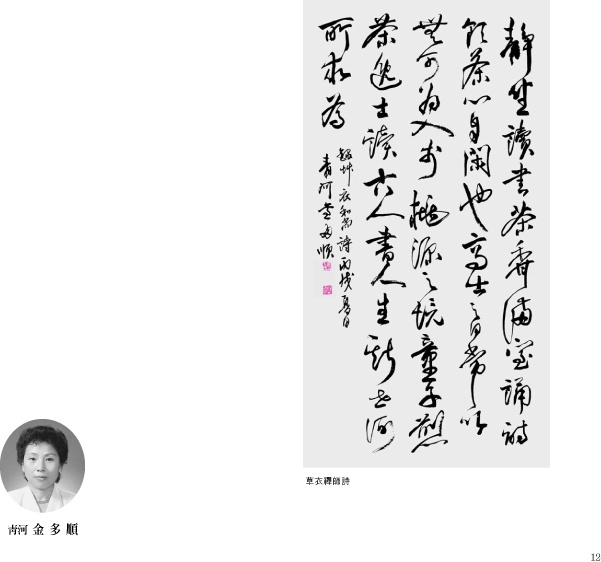 靜坐讀書茶香滿室誦詩
茶心自閑也高士之日常
無可爲人步桃源之境童子煎
茶逸士讀古人書人生斯世何
所求焉
艸衣和尚詩丙戌夏日
靑河金多順
草衣禪師詩
靑河 金多順
12